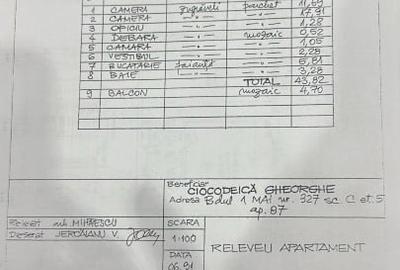 1 CAMERA zugrăveli parchet 11,69
2 CAMERA —„— —„— 17,91
3 OFICIU —„— —„— 1,28
4 DEBARA —„— mozaic 0,52
5 CĂMARA —„— —„— 1,05
6 VESTIBUL —„— —„— 2,28
7 BUCĂTĂRIE faianță —„— 5,81
8 BAIE —„— —„— 3,28
TOTAL 43,82
9 BALCON mozaic 4,70
Beneficiar
CIOCODEICĂ GHEORGHE
Adresa Bdul 1 MAI nr. 327 sc C et.5
ap. 87
arh. MIHĂESCU
Desenat JERCĂIANU V.
SCARA
1:100
DATA
06.91
RELEVEU APARTAMENT